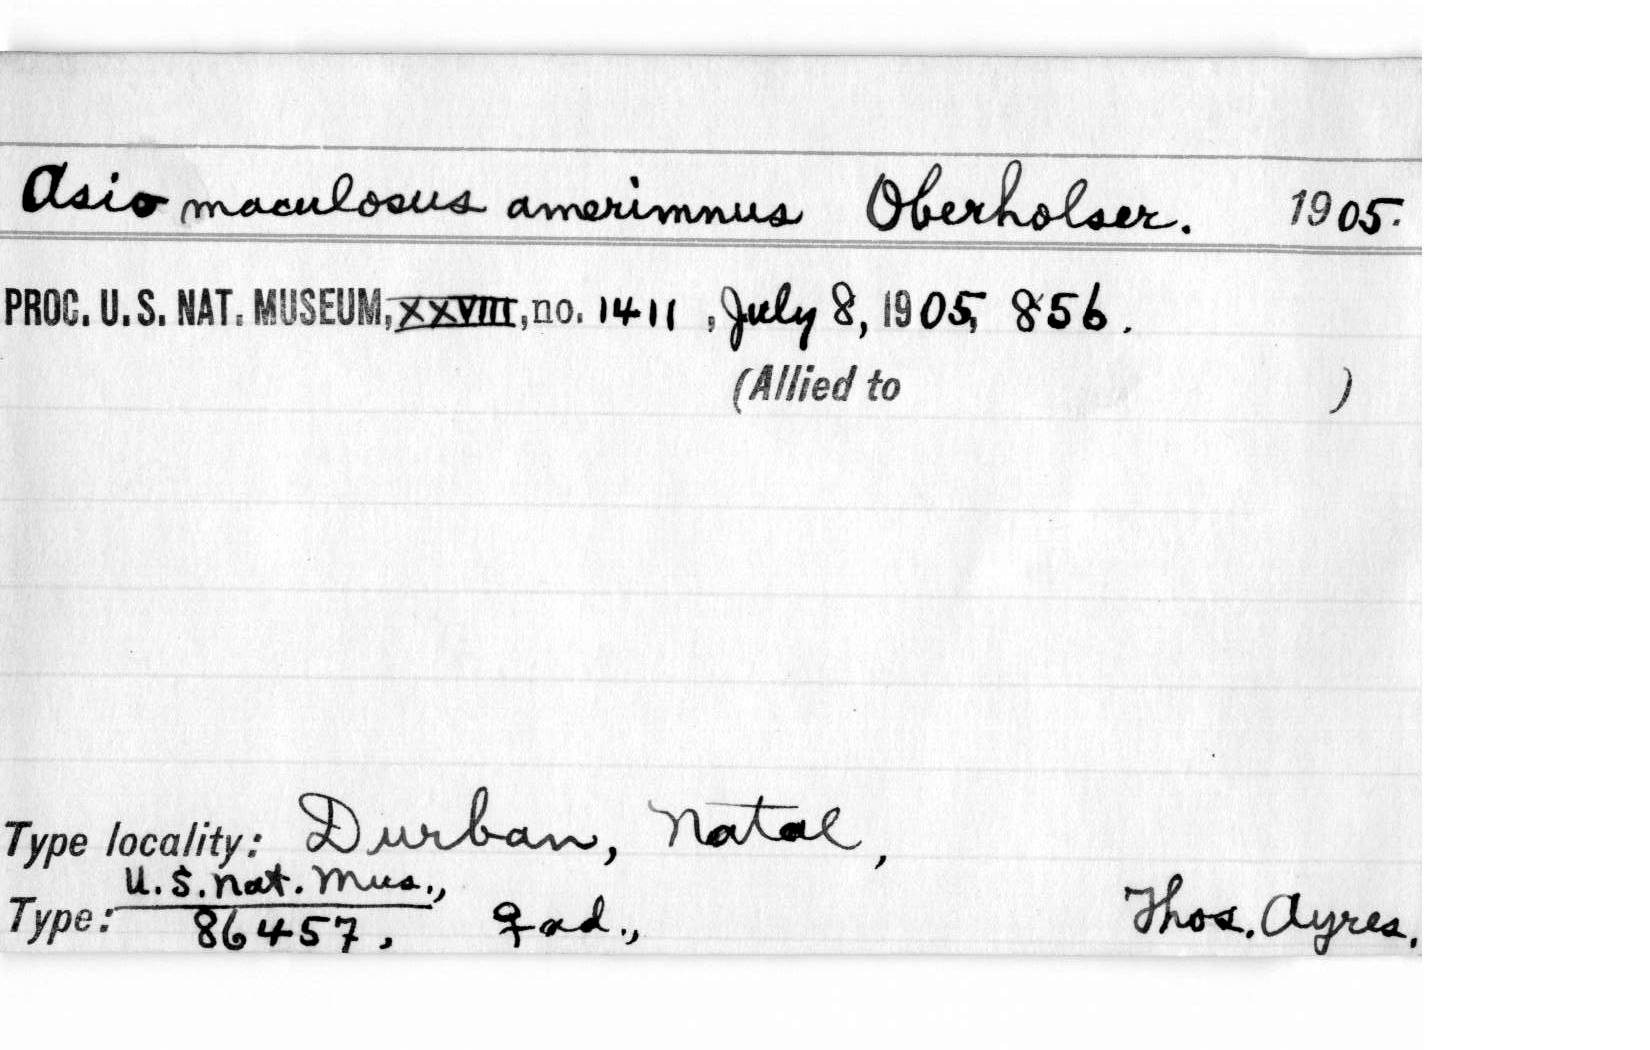 Asio maculosus amerimnus Oberholser. 1905.
PROC. U.S. NAT. MUSEUM, XXVIII, no. 1411, July 8, 1905, 856.
(Allied to )
Type locality: Durban, Natal,
U.S. Nat. Mus.,
Type: 86457, ♀ ad., Thos. Ayres.